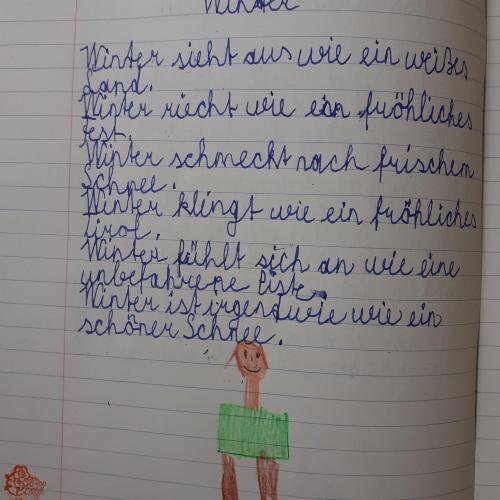 Winter
Winter sieht aus wie ein weißes
Land.
Winter riecht wie ein fröhliches
Fest.
Winter schmeckt nach frischem
Schnee.
Winter klingt wie ein fröhliches
Tirol.
Winter fühlt sich an wie eine
unbefahrene Piste
Winter ist irgendwie wie ein
schöner Schnee.